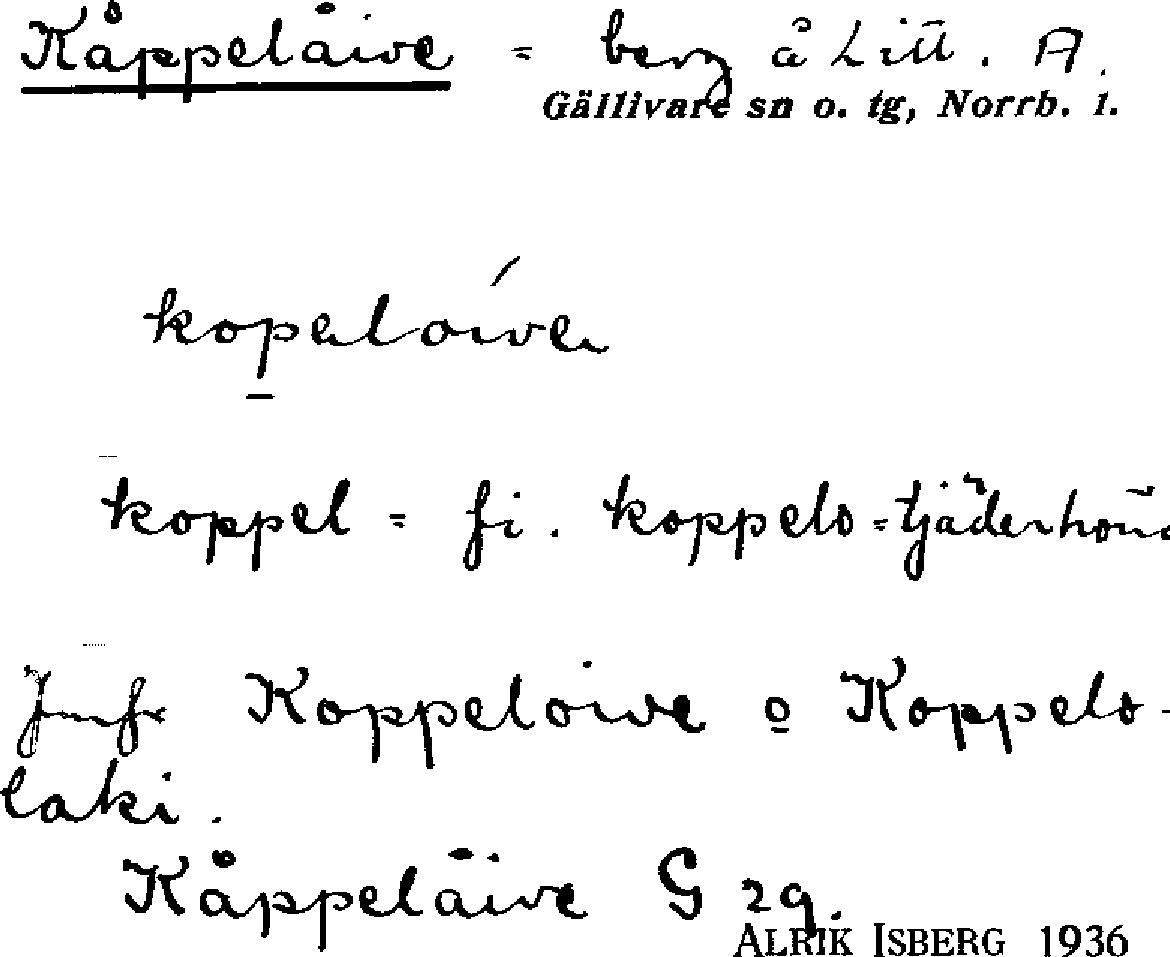 Kåppelåive = berg å Litt. A.
Gällivare sn o. tg, Norrb. l.
kopeloive
koppel = fi. koppelo = tjäderhöna
Jmfr Koppeloive o Koppelo-
laki.
Kåppelåive G 29.
ALRIK ISBERG 1936